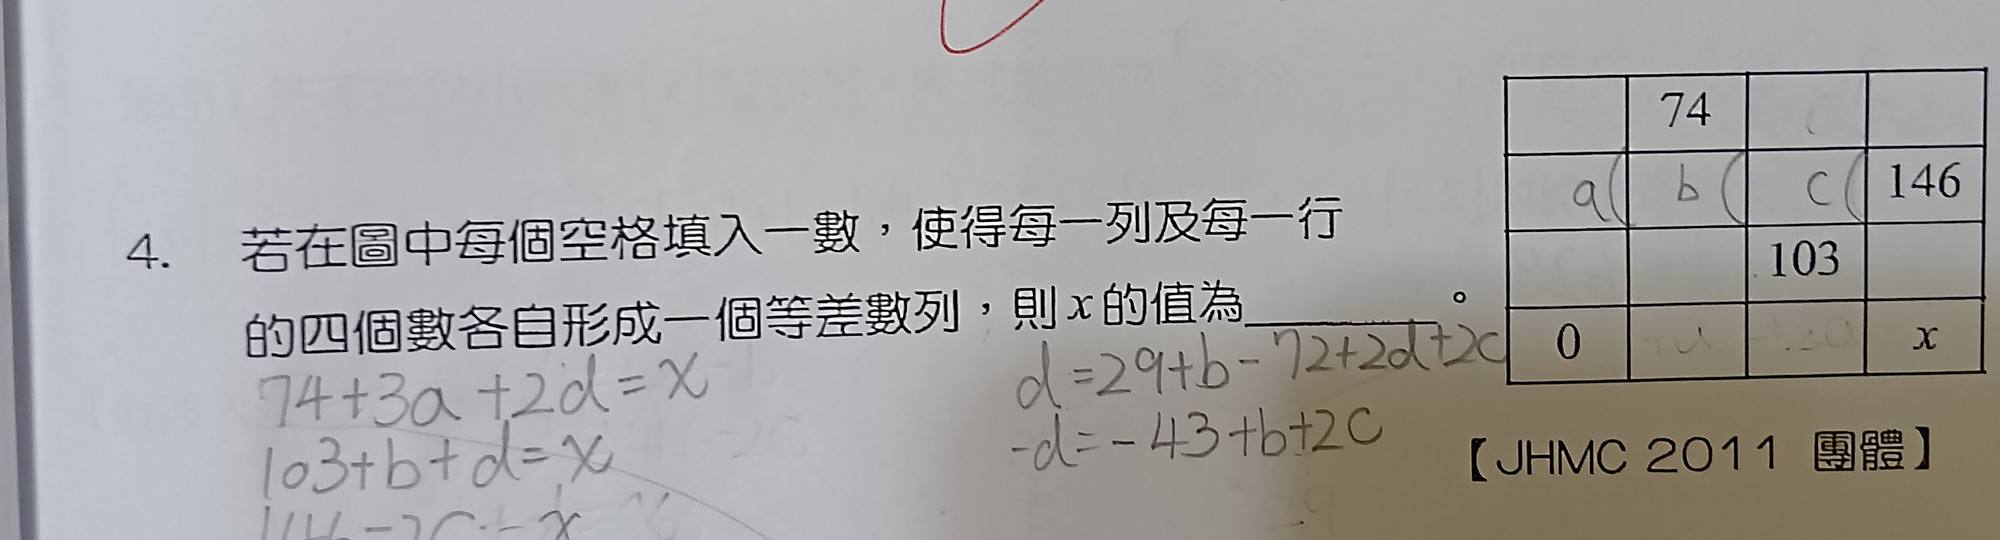 74
a b c 146
4. 若在圖中每個空格填入一數，使得每一列及每一行
103
的四個數各自形成一個等差數列，則x的值為________。
0 x
74+3a+2d=x
d=29+b-72+2d+2c
103+b+d=x
-d=-43+b+2c
【JHMC 2011 團體】